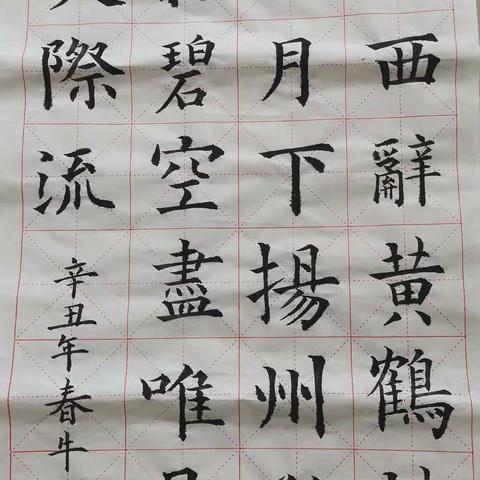 西辭黄鶴
月下揚州
碧空盡唯
際流
辛丑年春牛